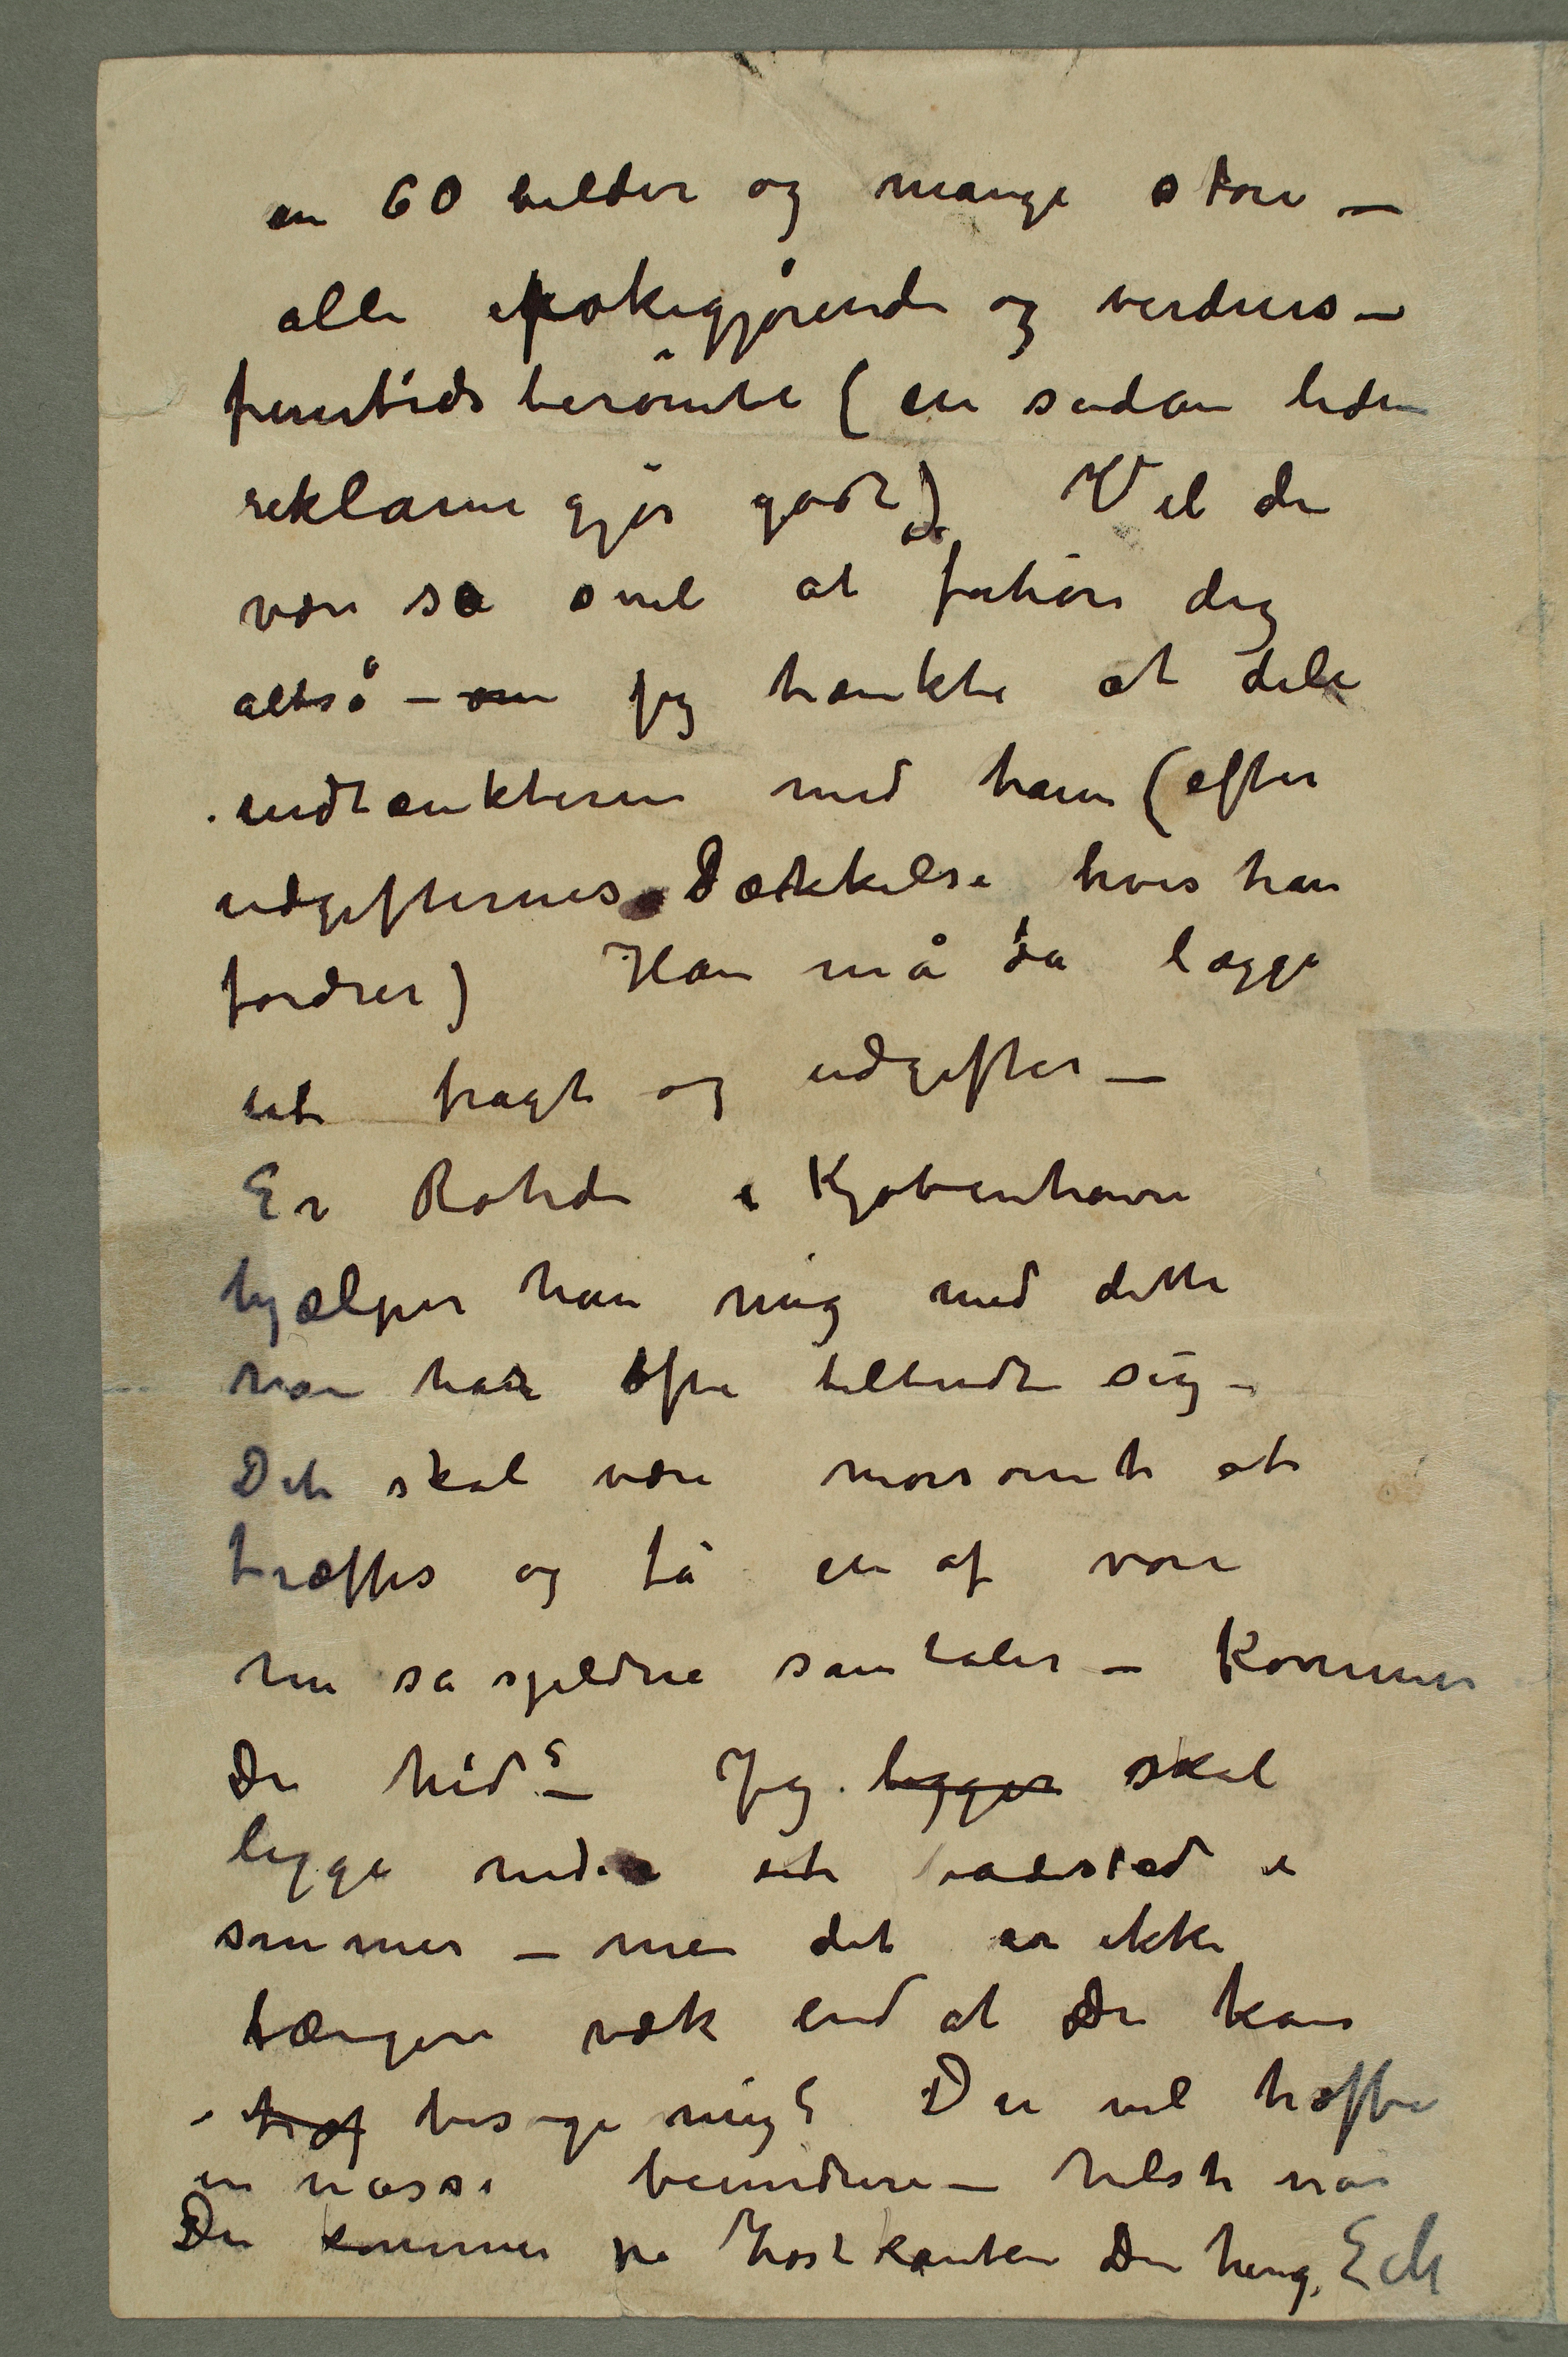 en 60 billder og mange store –
alle epokegjørende og verdens–
fremtids berömte (en sådan liden
reklame gjör godt) Vil du
være så snil at forhöre dig
altså – om jeg tænkte at dele
indtænkterne med ham (efter
udgifternes Dækkelse hvis han
fordrer) Han må da lægge
ut fragt og udgifter –
Er Rohde i Kjøbenhavn
hjælper han mig med dette
han har ofte tilbudt sig –
Det skal være morsomt at
træffes og få en af vore
nu så sjeldne samtaler – Kommer
Du hid? – Jeg ligger skal
ligge ved et badested i
sommer – men det er ikke
længere væk end at Du kan
træf besøge mig? Du vil træffe
en masse beundrere – helst når
Du kommer på Høstkanten Din heng. EM